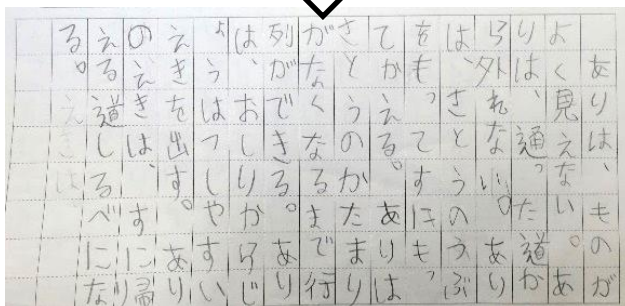 ありは、ものが
よく見えない。あ
りは、通った道か
ら外れない。あり
は、さとうのつぶ
をもってすにもっ
てかえる。ありは
さとうのかたまり
がなくなるまで行
列ができる。あり
は、おしりからじ
ょうはつしやすい
えきを出す。あり
のえきは、すに帰
える道しるべにな
る。
えきは